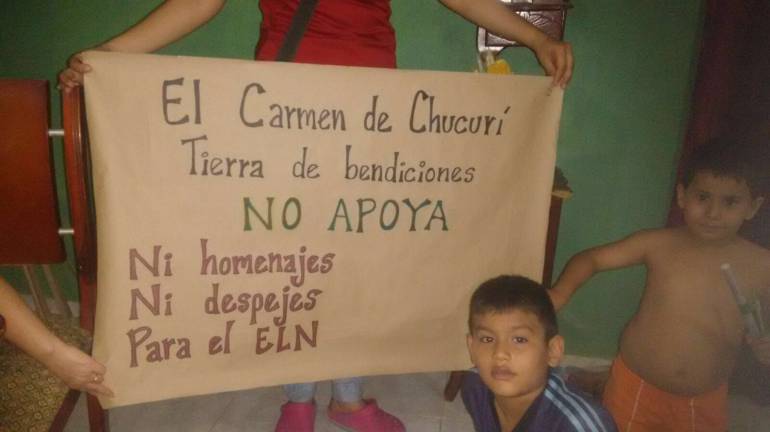 El Carmen de Chucurí
Tierra de bendiciones
NO APOYA
Ni homenajes
Ni despejes
Para el ELN